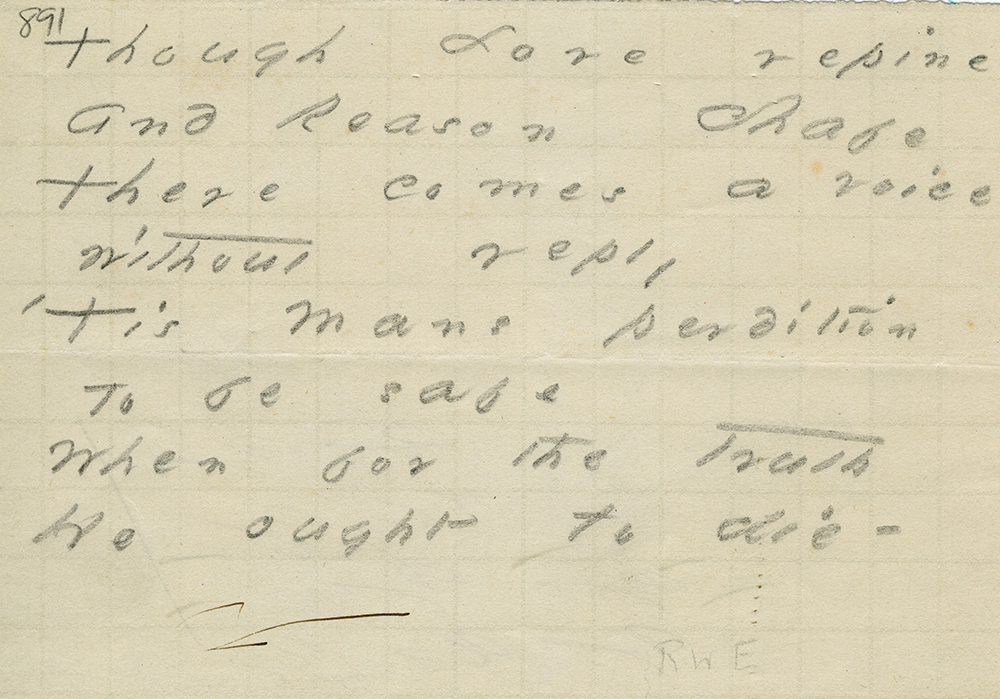 891
Though Love repine
And Reason Chafe
There comes a voice
without reply
'Tis Mans perdition
To be safe
When for the Truth
He ought to die -
RWE